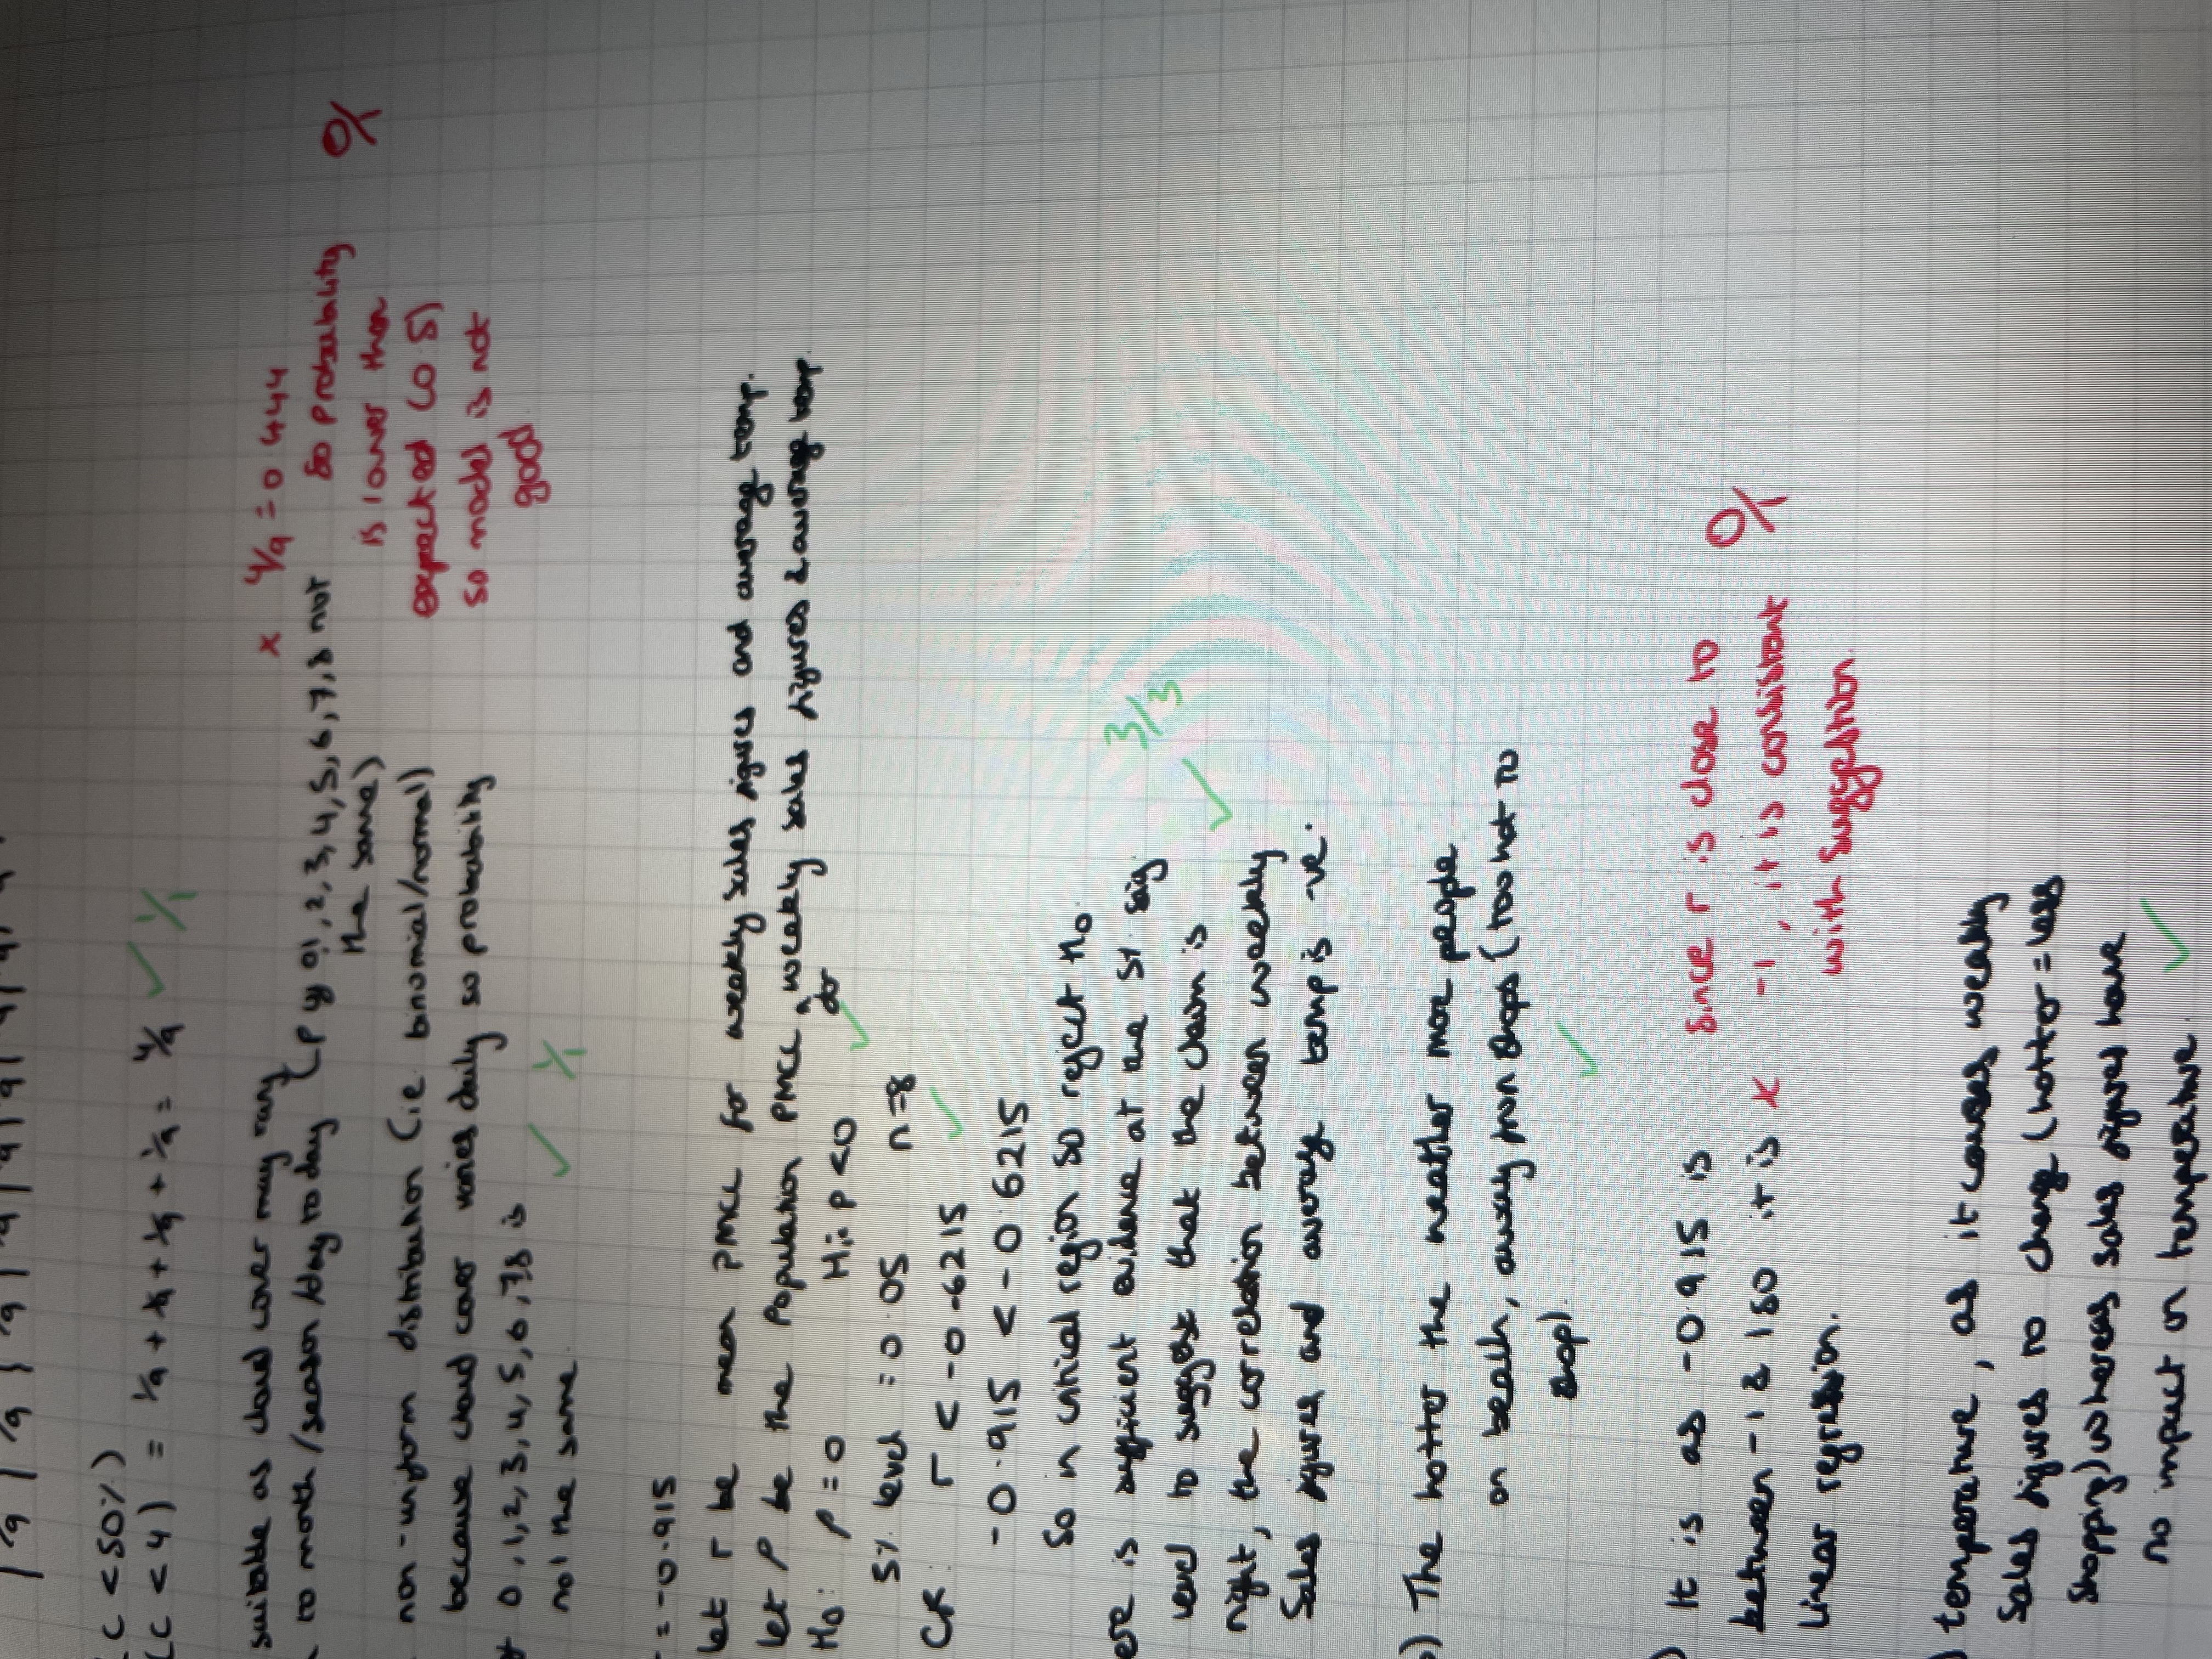 1/9 1/9 1/9 1/9 1/9 1/9 1/9 1/9
C < 50%)
(C < 4) = 1/9 + 1/9 + 1/9 + 1/9 = 4/9 ✓ 1/1
suitable as cloud cover may vary
to month/season/day to day (P of 0,1,2,3,4,5,6,7,8 not
the same)
x 4/9 = 0.444
so probability
is lower than
expected (0.5)
so model is not
good
0/1
non-uniform distribution (ie binomial/normal)
because cloud cover varies daily so probability
0,1,2,3,4,5,6,7,8 is
not the same.
✓ 1/1
= -0.915
let r be mean PMCC for weekly sales figures and average temp.
let ρ be the population PMCC for weekly sales figures & average temp.
H₀: ρ=0 H₁: ρ<0 ✓
5% level = 0.05 n=8
CR: r < -0.6215 ✓
-0.915 < -0.6215
so in critical region so reject H₀.
ere is sufficient evidence at the 5% sig
level to suggest that the claim is
right, the correlation between weekly
Sales figures and average temp is -ve.
✓ 3/3
) The hotter the weather more people
on beach, away from shops (too hot to
shop). ✓
) It is as -0.915 is
between -1 & 1 so it is x
linear regression.
Since r is close to
-1, it is consistant
with suggestion.
0/1
) temperature, as it causes weekly
Sales figures to change (hotter = less
shopping) whereas sales figures have
no impact on temperature. ✓